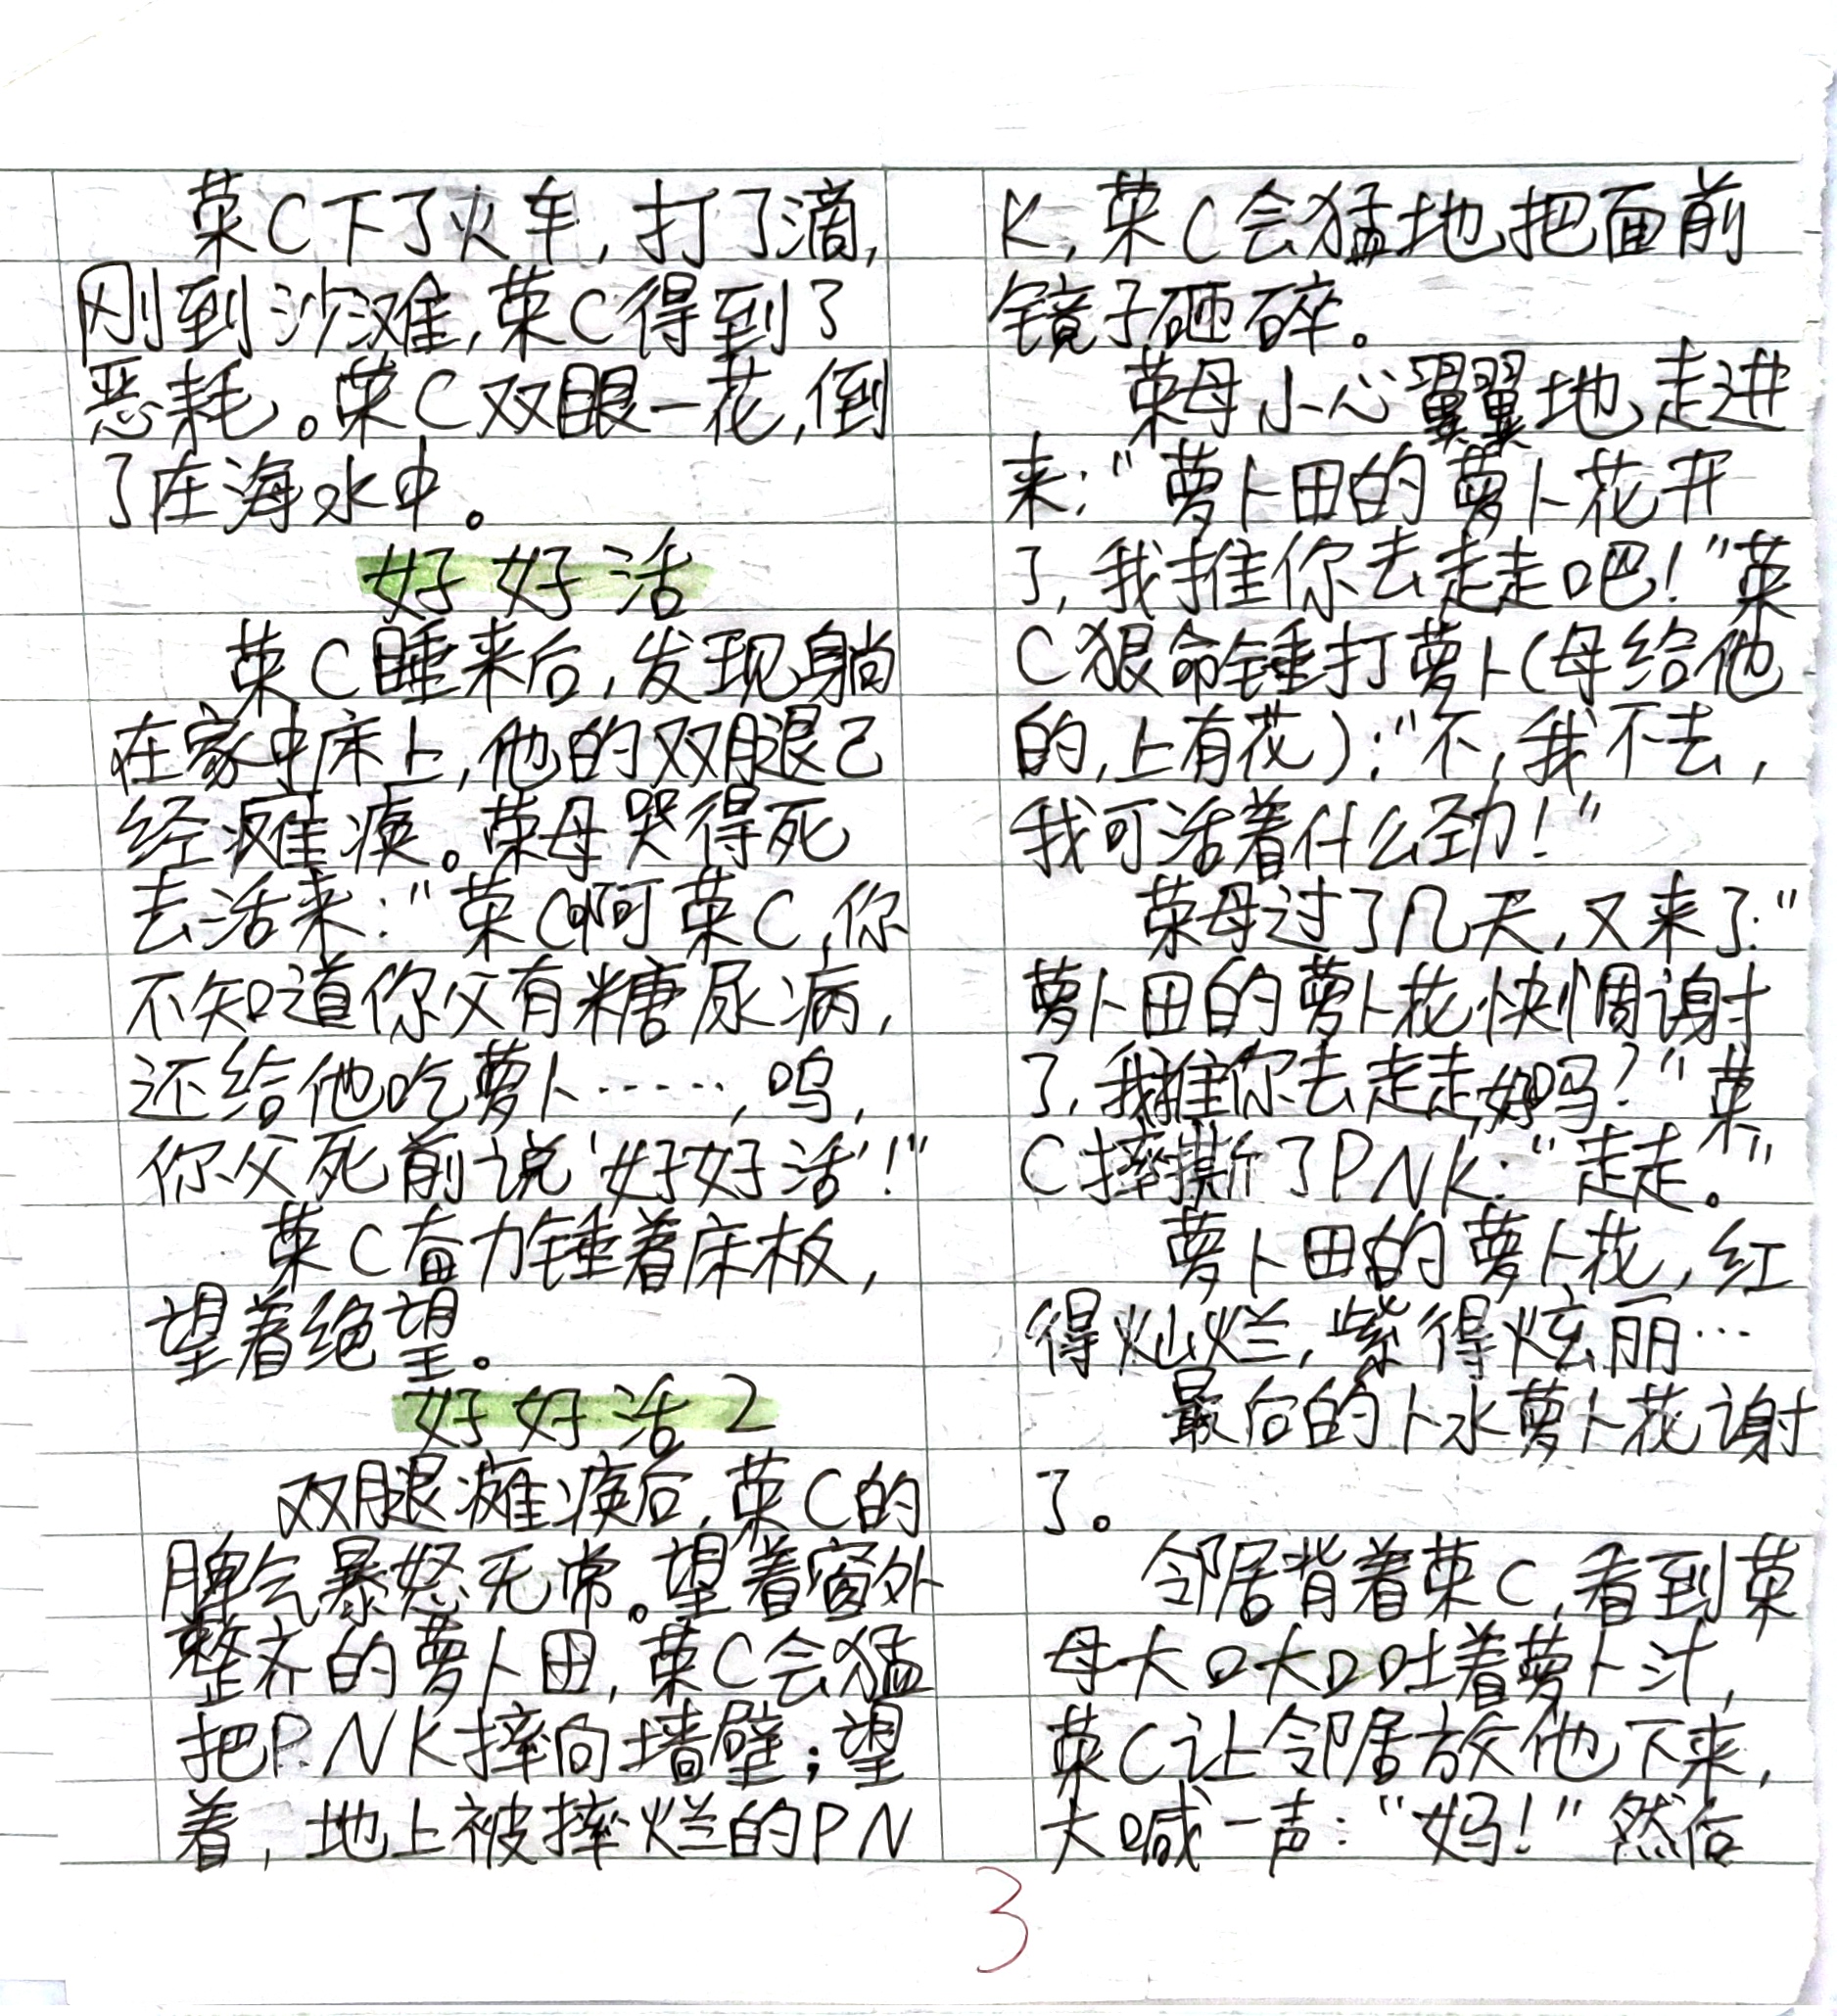 菜C下了火车,打了滴,
刚到沙滩,菜C得到了
恶耗。菜C双眼一花,倒
了在海水中。
好好活
菜C睡来后,发现躺
在家中床上,他的双腿己
经瘫痪。菜母哭得死
去活来:"菜C啊菜C,你
不知道你父有糖尿病,
还给他吃萝卜……,呜,
你父死前说'好好活'!"
菜C奋力锤着床板,
望着绝望。
好好活2
双腿瘫痪后,菜C的
脾气暴怒无常。望着窗外
整齐的萝卜田,菜C会猛
把P.NK摔向墙壁;望
着,地上被摔烂的PN
K,菜C会猛地把面前
镜子砸碎。
菜母小心翼翼地走进
来:"萝卜田的萝卜花开
了,我推你去走走吧!"菜
C狠命锤打萝卜(母给他
的,上有花):"不,我不去,
我可活着什么劲!"
菜母过了几天,又来了:"
萝卜田的萝卜花快惆谢
了,我推你去走走,好吗?"菜
C摔撕了PNK:"走走。"
萝卜田的萝卜花,红
得灿烂,紫得炫丽…
最后的卜水萝卜花谢
了。
邻居背着菜C,看到菜
母大口大口吐着萝卜汁,
菜C让邻居放他下来,
大喊一声:"妈!"然后
3